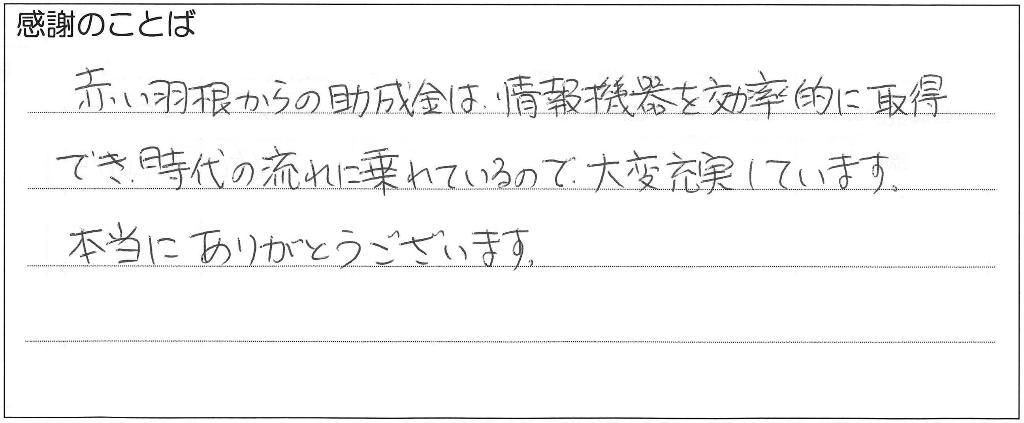 感謝のことば
赤い羽根からの助成金は、情報機器を効率的に取得
でき、時代の流れに乗れているので、大変充実しています。
本当にありがとうございます。